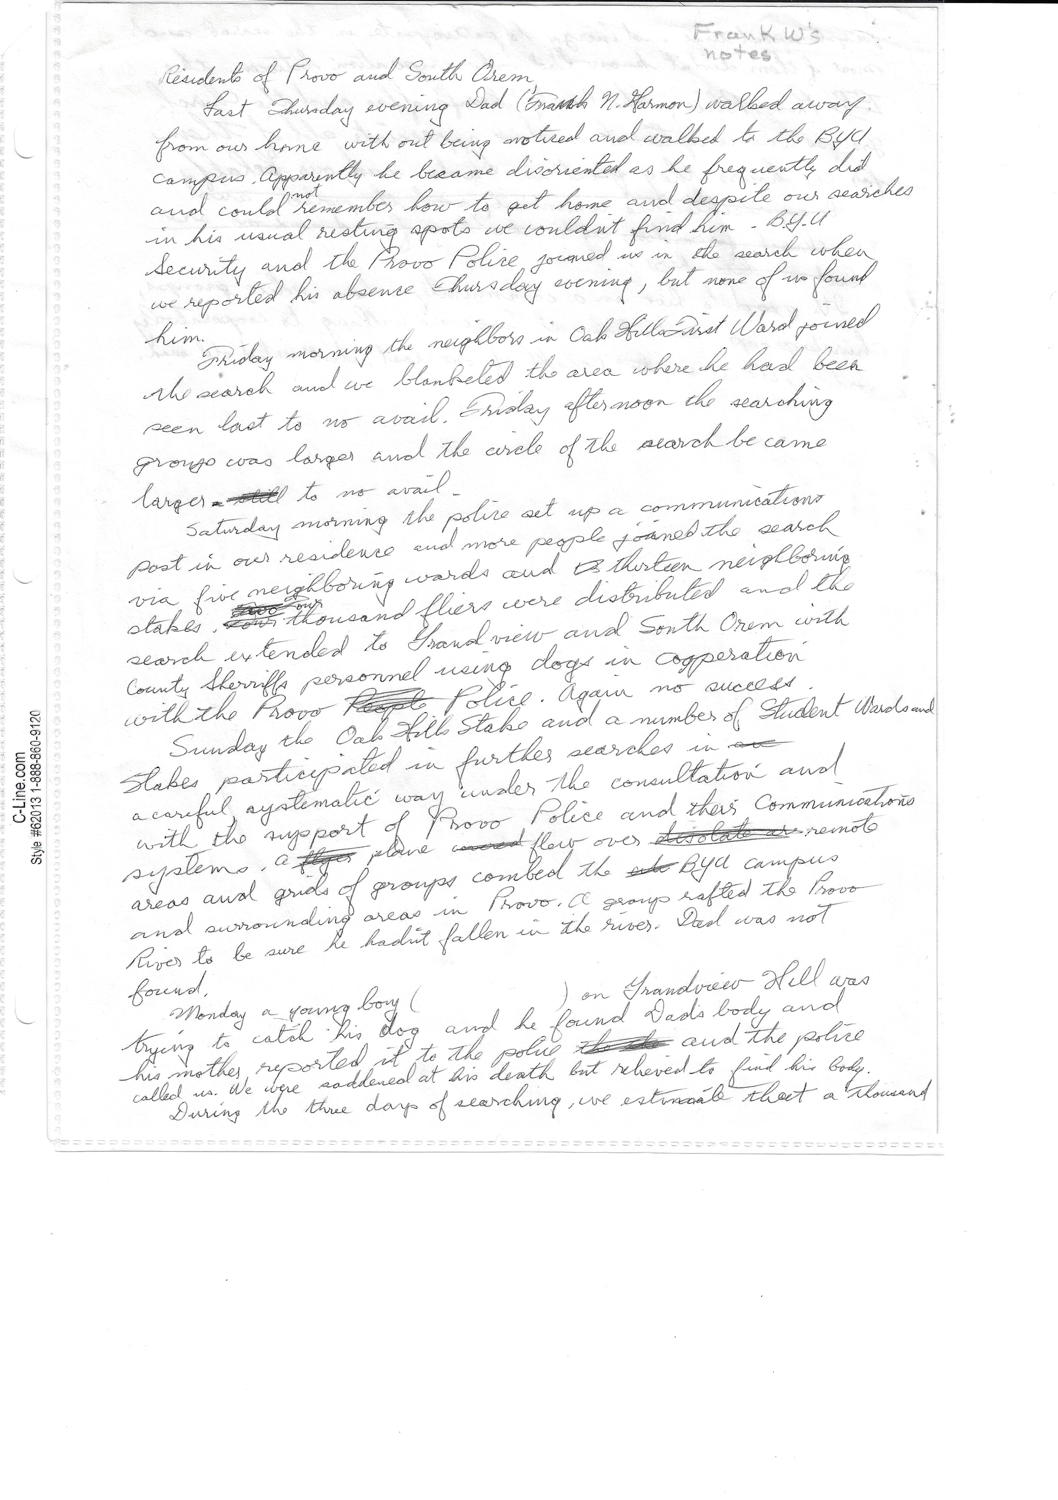 Frank W's
notes
Residents of Provo and South Orem
Last Thursday evening Dad (Frank N. Harmon) walked away
from our home with out being noticed and walked to the BYU
campus. Apparently he became disoriented as he frequently did
and could not remember how to get home and despite our searches
in his usual resting spots we couldn't find him - B.Y.U
Security and the Provo Police joined us in the search when
we reported his absence Thursday evening, but none of us found
him.
Friday morning the neighbors in Oak Hills First Ward joined
the search and we blanketed the area where he had been
seen last to no avail. Friday afternoon the searching
groups was larger and the circle of the search became
larger still to no avail -
Saturday morning the police set up a communications
post in our residence and more people joined the search
via five neighboring wards and thirteen neighboring
stakes. Four thousand fliers were distributed and the
search extended to Grandview and South Orem with
County Sherriffs personnel using dogs in cogperation
with the Provo People Police. Again no success.
Sunday the Oak Hills Stake and a number of Student Wards and
Stakes participated in further searches in
a careful, systematic way under the consultation and
with the support of Provo Police and their Communications
systems. A plane flew over disolate remote
areas and grids of groups combed the BYU campus
and surrounding areas in Provo. A group rafted the Provo
River to be sure he hadn't fallen in the river. Dad was not
found.
Monday a young boy ( ) on Grandview Hill was
trying to catch his dog and he found Dads body and
his mother reported it to the police and the police
called us. We were saddened at his death but relieved to find his body.
During the three days of searching, we estimate that a thousand
C-Line.com
Style #62013 1-888-860-9120